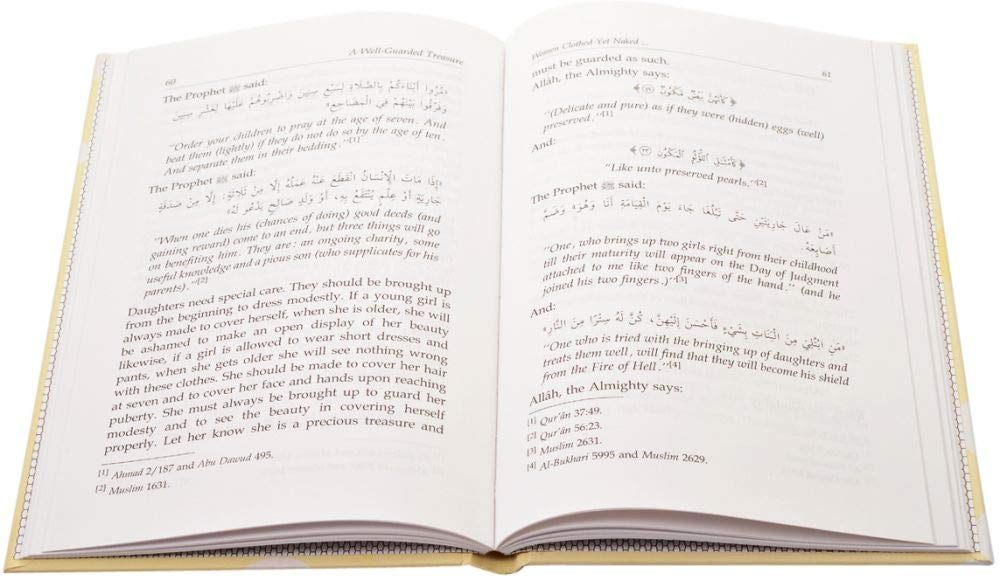 60
A Well-Guarded Treasure
The Prophet ﷺ said:
«مُرُوا أَبْنَاءَكُمْ بِالصَّلَاةِ لِسَبْعِ سِنِينَ وَاضْرِبُوهُمْ عَلَيْهَا لِعَشْرِ سِنِينَ
وَفَرِّقُوا بَيْنَهُمْ فِي الْمَضَاجِعِ»
"Order your children to pray at the age of seven. And
beat them (lightly) if they do not do so by the age of ten.
And separate them in their bedding."[1]
The Prophet ﷺ said:
«إِذَا مَاتَ الْإِنْسَانُ انْقَطَعَ عَنْهُ عَمَلُهُ إِلَّا مِنْ ثَلَاثَةٍ: إِلَّا مِنْ صَدَقَةٍ
جَارِيَةٍ أَوْ عِلْمٍ يُنْتَفَعُ بِهِ، أَوْ وَلَدٍ صَالِحٍ يَدْعُو لَهُ»
"When one dies his (chances of doing) good deeds (and
gaining reward) come to an end, but three things will go
on benefiting him. They are: an ongoing charity, some
useful knowledge and a pious son (who supplicates for his
parents)."[2]
Daughters need special care. They should be brought up
from the beginning to dress modestly. If a young girl is
always made to cover herself, when she is older, she will
be ashamed to make an open display of her beauty
likewise, if a girl is allowed to wear short dresses and
pants, when she gets older she will see nothing wrong
with these clothes. She should be made to cover her hair
at seven and to cover her face and hands upon reaching
puberty. She must always be brought up to guard her
modesty and to see the beauty in covering herself
properly. Let her know she is a precious treasure and
[1] Ahmad 2/187 and Abu Dawud 495.
[2] Muslim 1631.
Women Clothed Yet Naked ...
61
must be guarded as such.
Allâh, the Almighty says:
﴿كَأَنَّهُنَّ بَيْضٌ مَّكْنُونٌ ﴿٤٩﴾
"(Delicate and pure) as if they were (hidden) eggs (well)
preserved."[1]
And:
﴿كَأَمْثَالِ اللُّؤْلُؤِ الْمَكْنُونِ ﴿٢٣﴾
"Like unto preserved pearls."[2]
The Prophet ﷺ said:
«مَنْ عَالَ جَارِيَتَيْنِ حَتَّى تَبْلُغَا جَاءَ يَوْمَ الْقِيَامَةِ أَنَا وَهُوَ» وَضَمَّ
أَصَابِعَهُ.
"One, who brings up two girls right from their childhood
till their maturity will appear on the Day of Judgment
attached to me like two fingers of the hand." (and he
joined his two fingers.)"[3]
And:
«مَنِ ابْتُلِيَ مِنَ الْبَنَاتِ بِشَيْءٍ فَأَحْسَنَ إِلَيْهِنَّ، كُنَّ لَهُ سِتْرًا مِنَ النَّارِ»
"One who is tried with the bringing up of daughters and
treats them well, will find that they will become his shield
from the Fire of Hell."[4]
Allâh, the Almighty says:
[1] Qur'ân 37:49.
[2] Qur'ân 56:23.
[3] Muslim 2631.
[4] Al-Bukhari 5995 and Muslim 2629.